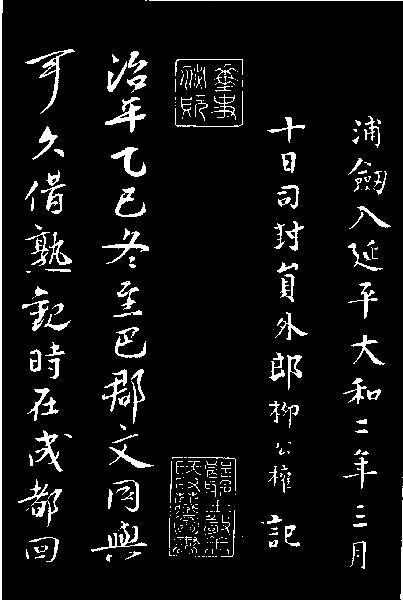 浦劔入延平大和二年三月
十日司封員外郎柳公權記
治平乙巳冬至巴郡文同與
可久借熟觀時在成都回